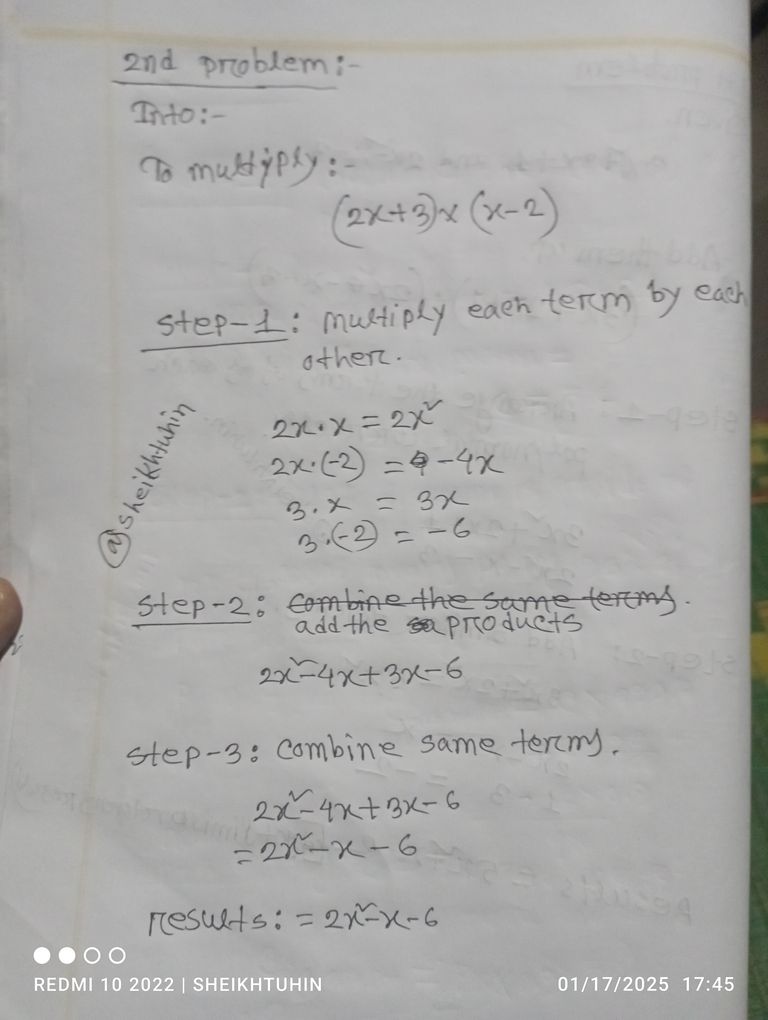 2nd problem:-
Into:-
To multiply:-
(2x+3)x(x-2)
Step-1: multiply each term by each
other.
2x·x = 2x²
2x·(-2) = -4x
3·x = 3x
3·(-2) = -6
@sheikhtuhin
Step-2: combine the same terms.
add the products
2x²-4x+3x-6
Step-3: combine same terms.
2x²-4x+3x-6
=2x²-x-6
results: = 2x²-x-6
REDMI 10 2022 | SHEIKHTUHIN
01/17/2025 17:45